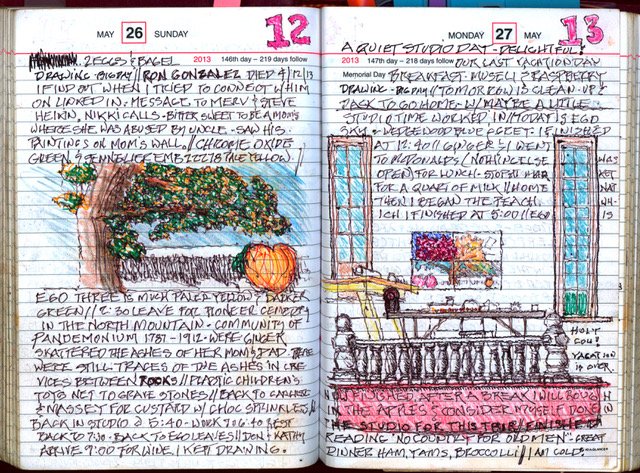 MAY 26 SUNDAY 12
2 EGGS & BAGEL
2013 146th day – 219 days follow
DRAWING - BIG DAY // RON GONZALEZ DIED 4/12/13
I FIND OUT WHEN I TRIED TO CONNECT W/ HIM
ON LINKED IN. MESSAGE TO MERV & STEVE
HEIKN, NIKKI CALLS - BITTER SWEET TO BE @ MOM'S
WHERE SHE WAS ABUSED BY UNCLE - SAW HIS
PAINTINGS ON MOM'S WALL // CHROME OXIDE
GREEN & THE YELLOW
EGO THREE IS MUCH PALED YELLOW & DARKER
GREEN // 2:30 LEAVE FOR PIONEER CEMETERY
IN THE NORTH MOUNTAIN - COMMUNITY OF
PANDEMONIUM 1787 - 1912. WERE GINGER
SKATTERED THE ASHES OF HER MOM & DAD. THERE
WERE STILL TRACES OF THE ASHES IN CRE
VICES BETWEEN ROCKS // PLASTIC CHILDREN'S
TOYS NEXT TO GRAVE STONES // BACK TO
& MASSEY FOR CUSTARD W/ CHOC SPRINKLES
BACK IN STUDIO @ 5:40 - WORK TO REST
BACK TO 7:30 - BACK TO EGO LEAVES // DON & KATHY
ARRIVE 9:00 FOR WINE, I KEPT DRAWING.
MONDAY 27 MAY 13
A QUIET STUDIO DAY - DELIGHTFUL!
2013 147th day – 218 days follow OUR LAST VACATION DAY
Memorial Day BREAKFAST MUSELI & RASPBERRY
DRAWING - BIG DAY // TOMORROW IS CLEAN-UP &
PACK TO GO HOME - W/ MAYBE A LITTLE
STUDIO TIME WORKED IN // TODAY IS EGO
SKY & WEDGEWOOD BLUE AGEET - I FINISHED
AT 12:40 // GINGER & I WENT
TO McDONALDS (NOTHING ELSE WAS
OPEN) FOR LUNCH - STOP @
FOR A QUART OF MILK // HOME
THEN I BEGAN THE PEACH.
ICH I FINISHED AT 5:00 // EGO IS
HOLY
COW!
VACATION
IS OVER.
NOW FINISHED, AFTER A BREAK I WILL ROUGH
IN THE APPLES & CONSIDER MYSELF DONE IN
THE STUDIO FOR THIS TRIP / FINISHED
READING "NO COUNTRY FOR OLD MEN" - GREAT
DINNER HAM, YAMS, BROCCOLI // I AM COLD.